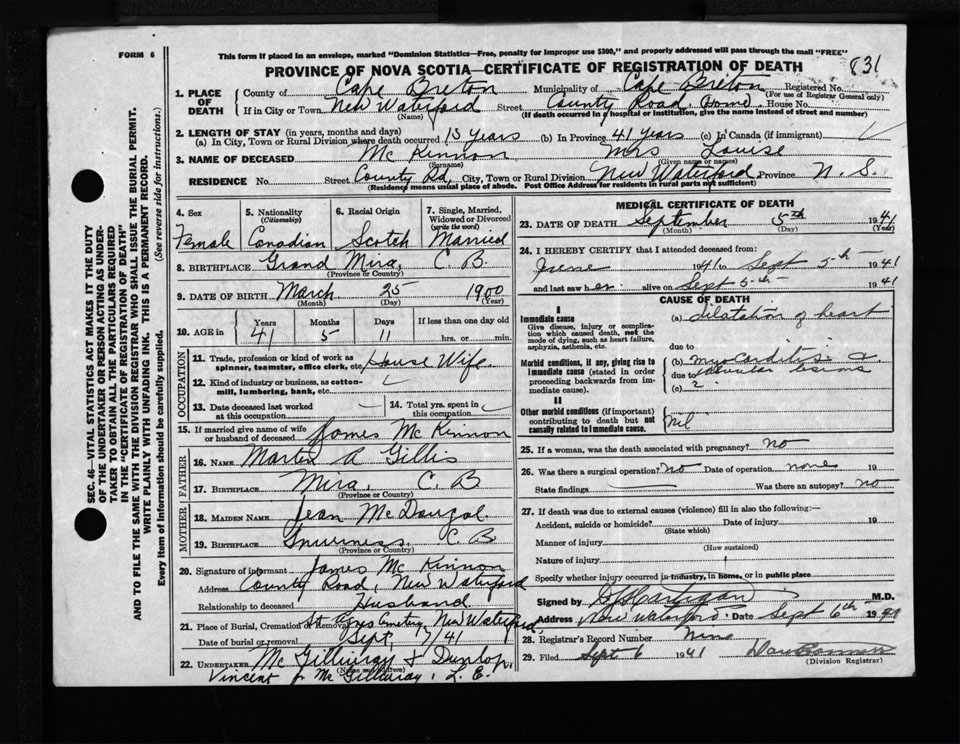 FORM 6
This form if placed in an envelope, marked "Dominion Statistics—Free, penalty for improper use $300," and properly addressed will pass through the mail "FREE"
PROVINCE OF NOVA SCOTIA—CERTIFICATE OF REGISTRATION OF DEATH
831
SEC. 46—VITAL STATISTICS ACT MAKES IT THE DUTY
OF THE UNDERTAKER OR PERSON ACTING AS UNDER-
TAKER TO OBTAIN ALL THE PARTICULARS REQUIRED
IN THE "CERTIFICATE OF REGISTRATION OF DEATH"
AND TO FILE THE SAME WITH THE DIVISION REGISTRAR WHO SHALL ISSUE THE BURIAL PERMIT.
WRITE PLAINLY WITH UNFADING INK. THIS IS A PERMANENT RECORD.
Every item of information should be carefully supplied. (See reverse side for instructions.)
1. PLACE OF DEATH County of Cape Breton Municipality of Cape Breton Registered No.
(For use of Registrar General only)
If in City or Town New Waterford Street County Road, Home House No.
(Name) (If death occurred in a hospital or institution, give the name instead of street and number)
2. LENGTH OF STAY (in years, months and days)
(a) In City, Town or Rural Division where death occurred 15 years (b) In Province 41 years (c) In Canada (if immigrant)
3. NAME OF DECEASED Mc Kinnon Mrs Louise
(Surname) (Given name or names)
RESIDENCE No. Street County Rd, City, Town or Rural Division New Waterford, Province N. S.
(Residence means usual place of abode. Post Office Address for residents in rural parts not sufficient)
4. Sex Female
5. Nationality (Citizenship) Canadian
6. Racial Origin Scotch
7. Single, Married, Widowed or Divorced (write the word) Married
8. BIRTHPLACE Grand Mira, C. B.
(Province or Country)
9. DATE OF BIRTH March 25 1900
(Month) (Day) (Year)
10. AGE in Years 41 Months 5 Days 11 If less than one day old hrs. or min.
OCCUPATION
11. Trade, profession or kind of work as spinner, teamster, office clerk, etc. House Wife
12. Kind of industry or business, as cotton-mill, lumbering, bank, etc.
13. Date deceased last worked at this occupation
14. Total yrs. spent in this occupation
15. If married give name of wife or husband of deceased James Mc Kinnon
FATHER
16. NAME Martin A Gillis
17. BIRTHPLACE Mira, C. B
(Province or Country)
MOTHER
18. MAIDEN NAME Jean McDougal
19. BIRTHPLACE Inverness, C B
(Province or Country)
20. Signature of informant James Mc Kinnon
Address County Road, New Waterford
Relationship to deceased Husband
21. Place of Burial, Cremation or Removal Cemetery, New Waterford
Date of burial or removal Sept 7/41
22. UNDERTAKER Mc Gillivray & Dunlop,
(Name and address)
Vincent J. Mc Gillivray, L. E.
MEDICAL CERTIFICATE OF DEATH
23. DATE OF DEATH September 5th 1941
(Month) (Day) (Year)
24. I HEREBY CERTIFY that I attended deceased from:
June 1941 to Sept 5th 1941
and last saw her alive on Sept 5th 1941
CAUSE OF DEATH
I
Immediate cause
Give disease, injury or complication which caused death, not the mode of dying, such as heart failure, asphyxia, asthenia, etc.
(a) dilatation of heart
due to
Morbid conditions, if any, giving rise to immediate cause (stated in order proceeding backwards from immediate cause).
(b) myocarditis &
due to valvular lesions
(c) ?
II
Other morbid conditions (if important) contributing to death but not causally related to immediate cause.
nil
25. If a woman, was the death associated with pregnancy? no
26. Was there a surgical operation? No Date of operation none 19
State findings Was there an autopsy? no
27. If death was due to external causes (violence) fill in also the following:—
Accident, suicide or homicide? Date of injury 19
(State which)
Manner of injury
(How sustained)
Nature of injury
Specify whether injury occurred in industry, in home, or in public place
Signed by Hartigan M.D.
Address New Waterford Date Sept 6th 1941
28. Registrar's Record Number Nine
29. Filed Sept 6 1941
(Division Registrar)